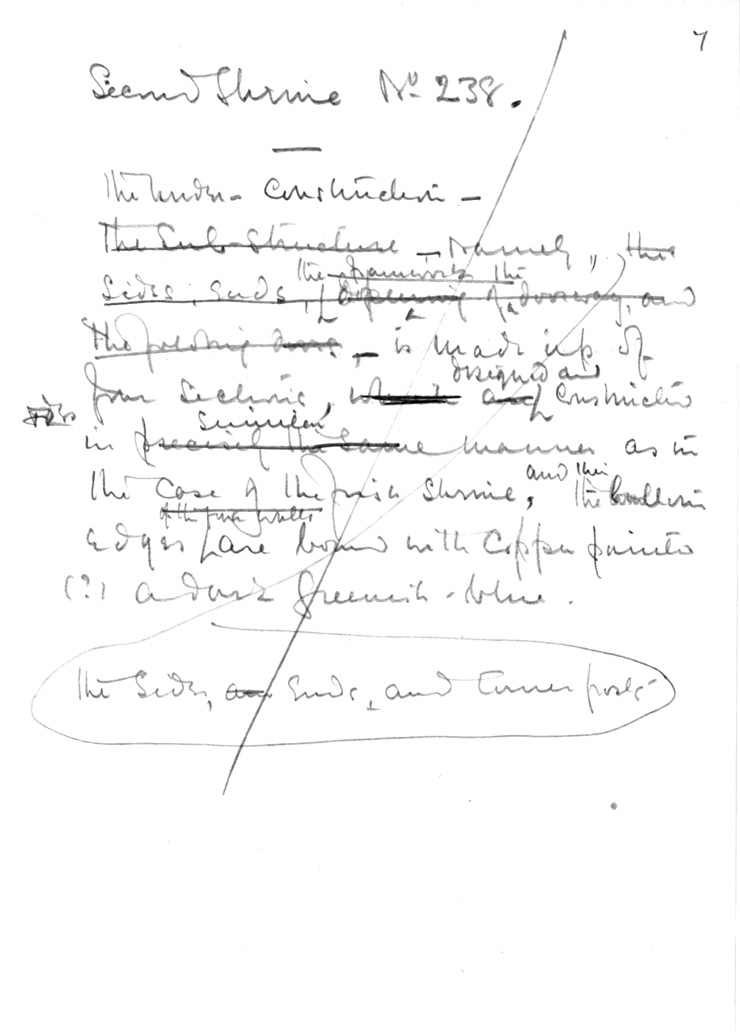 7
Second Shrine No. 238.
The under-construction -
The Sub-Structure - namely, the
the framework the
sides, ends, of a doorway, and
The folding doors, - is made up of
designed and
four sections, which and constructed
similar
in precisely the same manner as in
and their
the case of the first shrine, the
of the four walls
edges are bound with copper painted
(?) a dark greenish-blue.
the sides, and ends, and corner posts